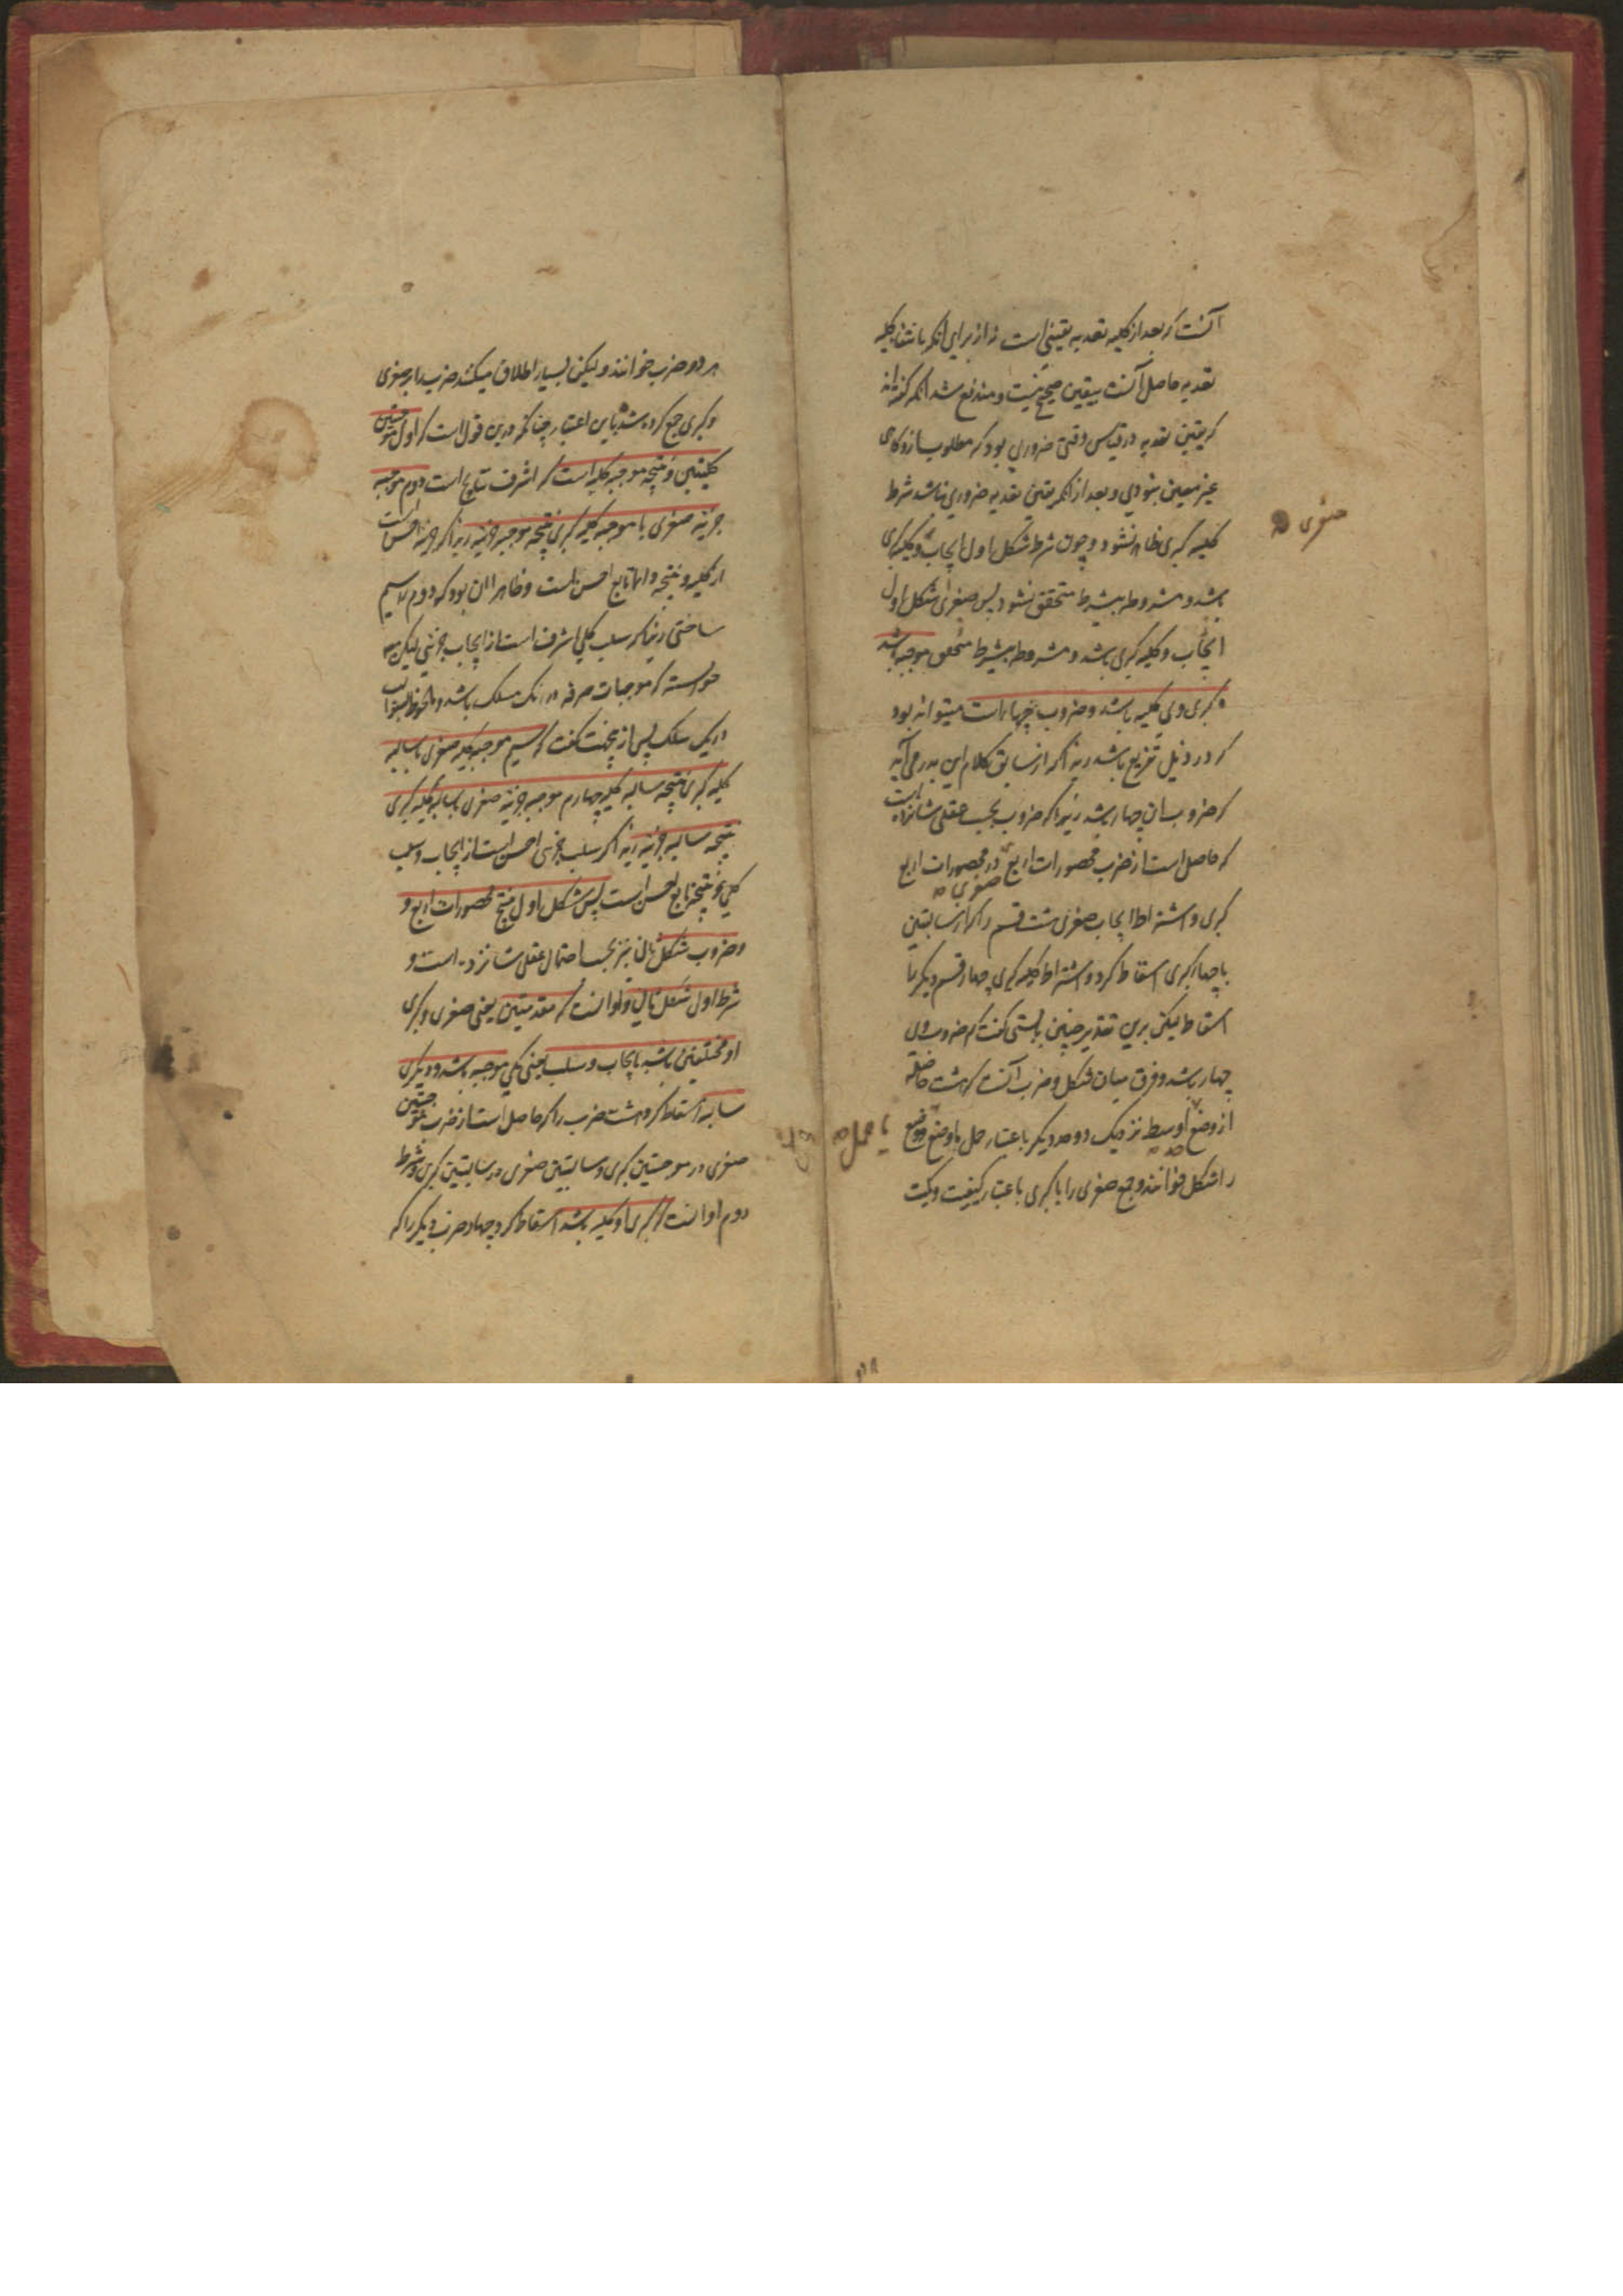 آنست که بعد از کلیه تعدیه یقینی است نه از برای آنکه بانتفا کلیه
تعدیه حاصل آنست بیقین صحیح نیست و مندفع شد آنکه گفته اند
که یقین تعدیه در قیاس وقتی ضروری بود که مطلوب سازوکاری
غیر معین بنودی و بعد از آنکه یقین تعدیه ضروری نباشد شرط
کلیه کبری ظاهر نشود و چون شرط شکل اول ایجاب و کلیه کبری
صغری
باشد و مشروط بیشرط متحقق نشود پس صغرای شکل اول
ایجاب و کلیه کبری باشد و مشروط بیشرط متحقق موجبه باشد
و کبری وی کلیه باشد و ضروب چهار است میتواند بود
که در ذیل تفریع باشد زیراکه از سابق کلام این بدر می آید
که ضروب آن چهار باشد زیراکه ضروب بحسب عقلی شانزده است
که حاصل است از ضرب محصورات اربع صغری در محصورات اربع
کبری و اشتراط ایجاب صغری هشت قسم را که از سالبتین
با چهار کبری اسقاط کرد و اشتراط کلیه کبری چهار قسم دیگر را
اسقاط لیکن برین تقدیر چنین بایستی گفت که ضروب وی
چهار باشد و فرق میان شکل و ضرب آنست که هیئت حاصله
از وضع اوسط نزدیک دو حد دیگر باعتبار حمل یا وضع
را شکل خوانند و جمع صغری را با کبری باعتبار کیفیت و کمیت
هر دو ضرب خوانند ولیکن بسیار اطلاق میکنند ضرب را بر صغری
و کبری جمع کرده شده باین اعتبار چنانکه درین قول است که اول موجبتین
کلیتین و نتیجه موجبه کلیه است که اشرف نتایج است دوم موجبه
جزئیه صغری با موجبه کلیه کبری نتیجه موجبه جزئیه زیراکه جزئیه اخس است
از کلیه و نتیجه دائما تابع اخس است و ظاهر آن بود که دوم را سیم
ساختی زیراکه سلب کلی اشرف است از ایجاب جزئی لیکن
خواسته که موجبات صرفه در یک مسلک باشد و مخلوط بسوالب
در یک سلک پس ازینجهت گفت که سیم موجبه کلیه صغری با سالبه
کلیه کبری نتیجه سالبه کلیه چهارم موجبه جزئیه صغری با سالبه کلیه کبری
نتیجه سالبه جزئیه زیراکه سلب جزئی اخس است از ایجاب و سلب
کلی و نتیجه تابع اخس است پس شکل اول منتج محصورات اربع و
و ضروب شکل ثانی نیز بحسب احتمال عقلی شانزده است و
شرط اول شکل ثانی و او آنست که مقدمتین یعنی صغری و کبری
او مختلفین باشد بایجاب و سلب یعنی یکی موجبه باشد و دیگری
سالبه اسقاط کرد هشت ضرب را که حاصل است از ضرب موجبتین
صغری در موجبتین کبری و سالبتین صغری در سالبتین کبری و شرط
دوم او آنست که کبری او کلیه باشد اسقاط کرد چهار ضرب دیگر را که